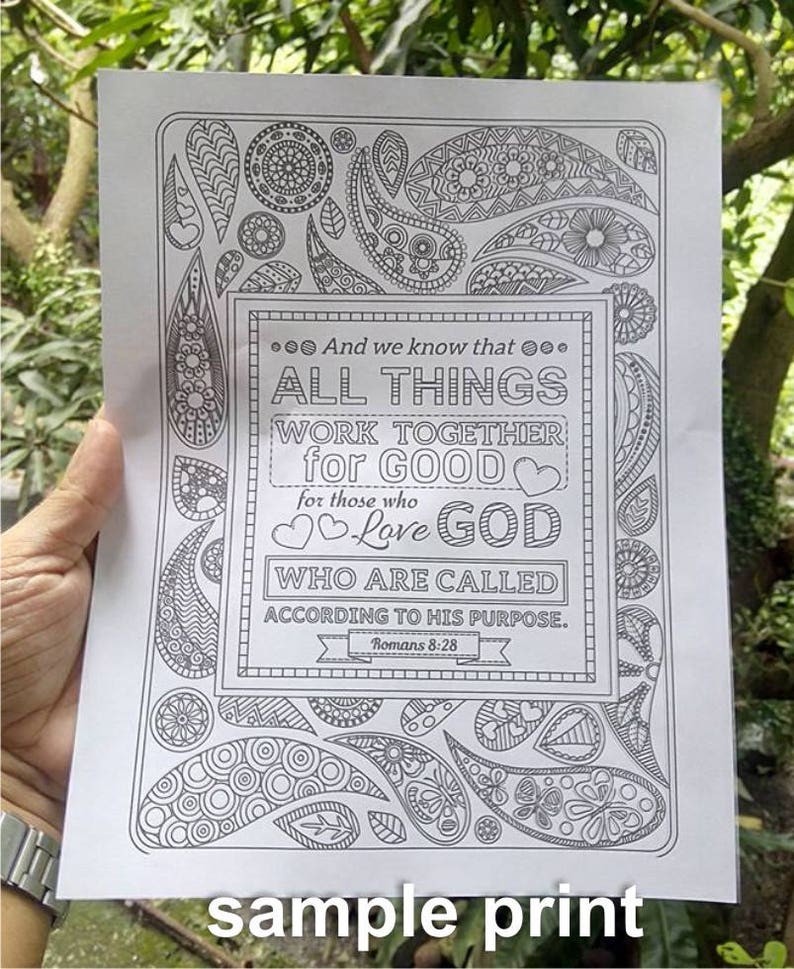 And we know that
ALL THINGS
WORK TOGETHER
for GOOD
for those who
Love GOD
WHO ARE CALLED
ACCORDING TO HIS PURPOSE.
Romans 8:28
sample print